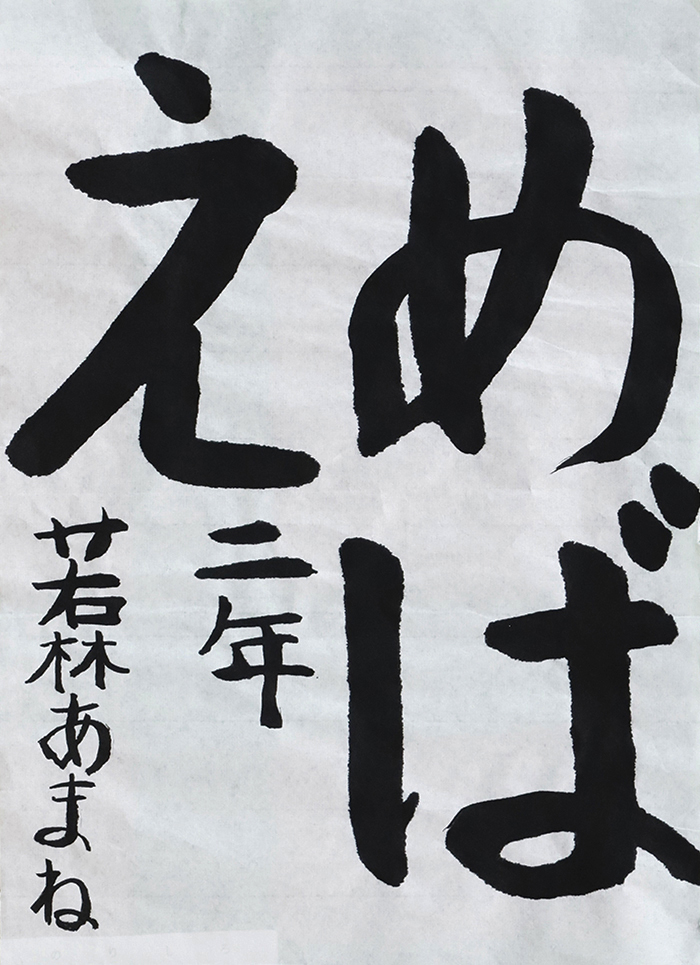 めば
え
二年
若林あまね